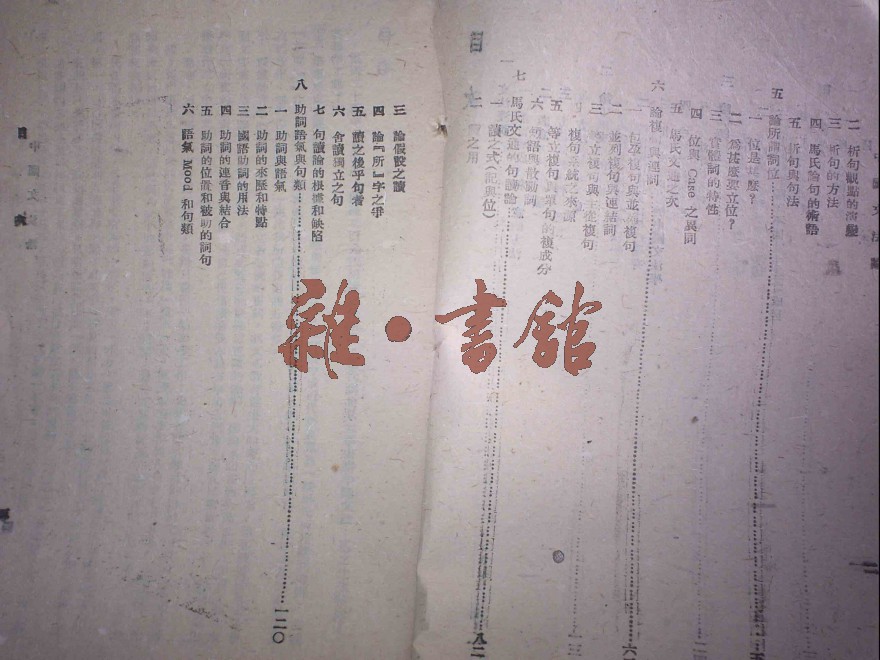 二 析句觀點的演變
三 析句的方法
四 馬氏論句的術語
五 析句與句法
五 論所謂詞位
一 位是甚麼?
二 爲甚麼要立位?
三 實體詞的特性
四 位與 Case 之異同
五 馬氏文通之次
六 論複句與連詞
一 包孕複句與並列複句
二 並列複句與連結詞
三 等立複句與主從複句
複句系統之來源
五 等立複句與單句的複成分
六 句語與散動詞
七 馬氏文通的句讀論
八二
一 讀之式(記與位)
二 讀之用
目
三 論假設之讀
四 論『所』字之爭
五 讀之後乎句者
六 舍讀獨立之句
七 句讀論的根據和缺陷
八 助詞語氣與句類
一二〇
一 助詞與語氣
二 助詞的來歷和特點
三 國語助詞的用法
四 助詞的連音與結合
五 助詞的位置和被助的詞句
六 語氣 Mood 和句類
雜·書館